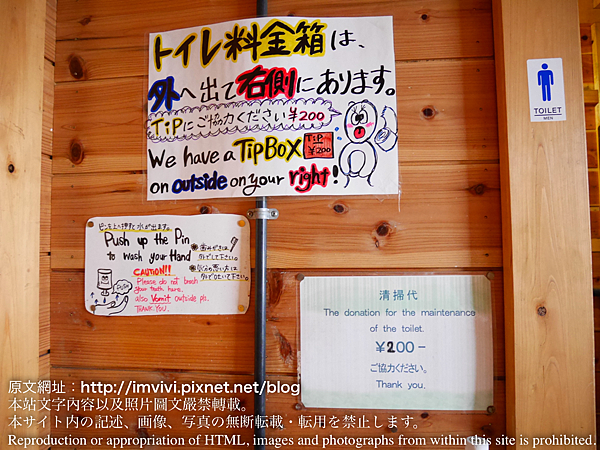 トイレ料金箱は、
外へ出て右側にあります。
TiPにご協力ください¥200
We have a TiPBOX
TiP
¥200
on outside on your right!
TOILET
MEN
ピンを上へ押すと水が出ます。
Push up the Pin
to wash your Hand
CAUTION!!
Please do not brush
your teeth here.
also Vomit outside pls.
THANK YOU.
清掃代
The donation for the maintenance
of the toilet.
¥200-
ご協力ください。
Thank you.
原文網址：http://imvivi.pixnet.net/blog
本站文字內容以及照片圖文嚴禁轉載。
本サイト内の記述、画像、写真の無断転載・転用を禁止します。
Reproduction or appropriation of HTML, images and photographs from within this site is prohibited.